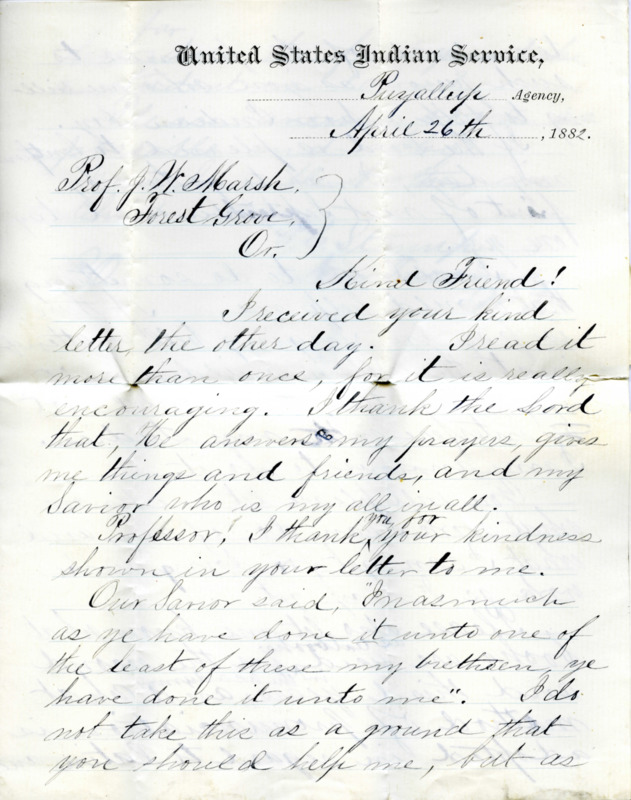 United States Indian Service,
Puyallup Agency,
April 26th, 1882.
Prof. J. W. Marsh,
Forest Grove,
Or.
Kind Friend!
I received your kind
letter, the other day. I read it
more than once, for it is really
encouraging. I thank the Lord
that, He answers my prayers, gives
me things and friends, and my
Savior who is my all in all.
Professor, I thank you for your kindness
shown in your letter to me.
Our Savior said, "Inasmuch
as ye have done it unto one of
the least of these my brethren, ye
have done it unto me". I do
not take this as a ground that
you should help me, but as